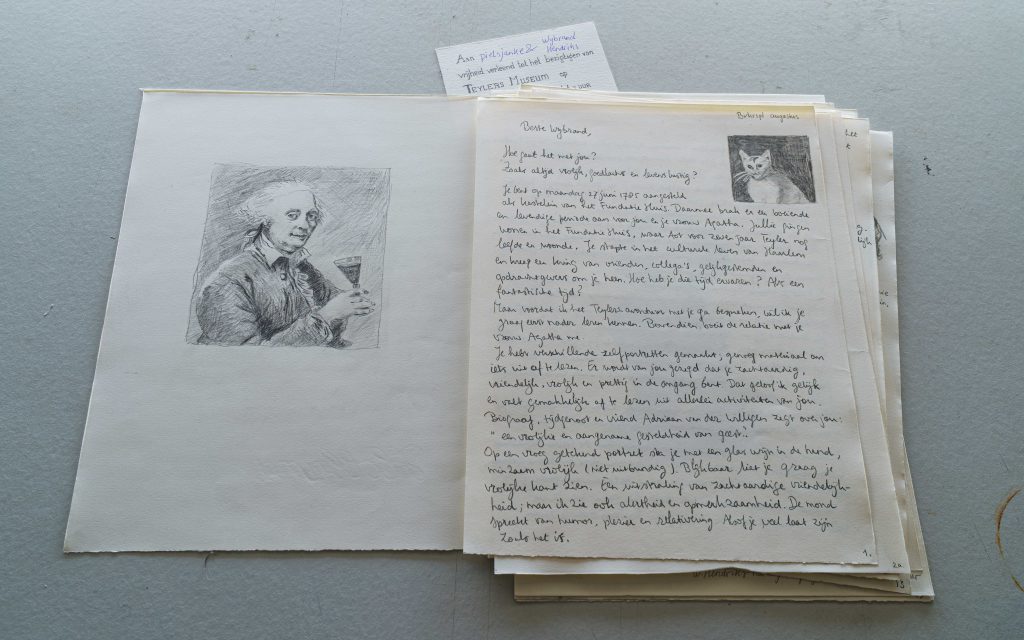 Aan pietsjanke & Wijbrand Hendriks
vrijheid verleend tot het bezigtigen van
TEYLERS MUSEUM op
augustus
Beste Wijbrand,
Hoe gaat het met jou?
Zoals altijd vrolijk, goedlachs en levenslustig?
Je bent op maandag 27 juni 1785 aangesteld
als kastelein van het Fundatie Huis. Daarmee brak er een boeiende
en levendige periode aan voor jou en je vrouw Agatha. Jullie gingen
wonen in het Fundatie Huis, waar tot voor zeven jaar Teyler nog
leefde en woonde. Je stapte in het culturele leven van Haarlem
en kreeg een kring van vrienden, collega's, gelijkgestemden en
opdrachtgevers om je heen. Hoe heb je die tijd ervaren? Als een
fantastische tijd?
Maar voordat ik het Teylers avontuur met je ga bespreken, wil ik je
graag eerst nader leren kennen. Bovendien boeit de relatie met je
vrouw Agatha me.
Je hebt verschillende zelfportretten gemaakt; genoeg materiaal om
iets uit af te lezen. Er wordt van jou gezegd dat je zachtaardig,
vriendelijk, vrolijk en prettig in de omgang bent. Dat geloof ik gelijk
en valt gemakkelijk af te lezen uit allerlei activiteiten van jou.
Biograaf, tijdgenoot en vriend Adriaan van der Willigen zegt over jou:
"een vrolijke en aangename gesteldheid van geest".
Op een vroeg getekend portret sta je met een glas wijn in de hand,
minzaam vrolijk (niet uitbundig). Blijkbaar liet je graag je
vrolijke kant zien. Een uitstraling van zachtaardige vriendelijk-
heid; maar ik zie ook alertheid en opmerkzaamheid. De mond
spreekt van humor, plezier en relativering. Alsof je wel laat zijn
zoals het is.
1.
2a
13
het